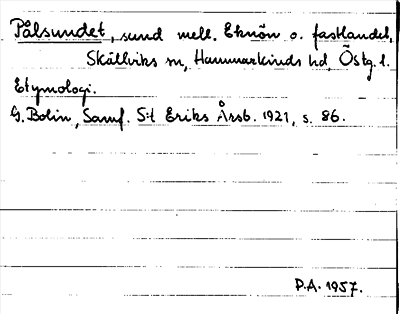 Pålsundet, sund mell. Eknön o. fastlandet,
Skällviks sn, Hammarkinds hd, Östg. l.
Etymologi.
G. Bolin, Samf. S:t Eriks Årsb. 1921, s. 86.
P.A. 1957.